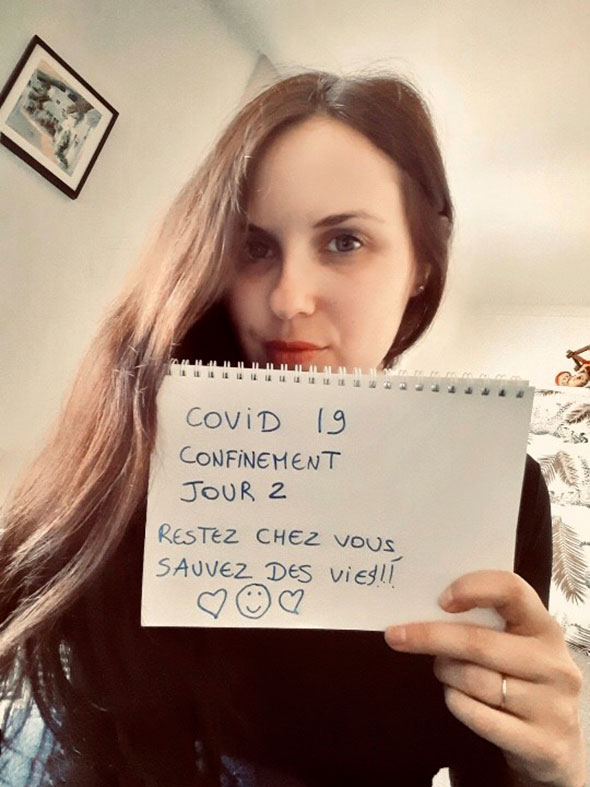 COVID 19
CONFINEMENT
JOUR 2
RESTEZ CHEZ VOUS,
SAUVEZ DES VIES!!!